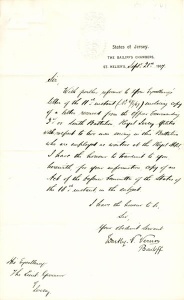 States of Jersey.
THE BAILIFF'S CHAMBERS,
ST HELIER'S, Sept. 21st 1917
Sir
With further reference to Your Excellency's
letter of the 11th instant enclosing copy
of a letter received from the Officer Commanding
2nd or South Battalion Royal Jersey Militia
with respect to men serving in this Battalion
who are employed as waiters at the Royal Hotel
I have the honour to transmit to you
herewith for your information copy of an
Act of the Defence Committee of the States of
the 18th instant on the subject.
I have the honour to be
Sir,
Your obedient Servant
Bailiff
His Excellency
The Lieut. Governor
Jersey